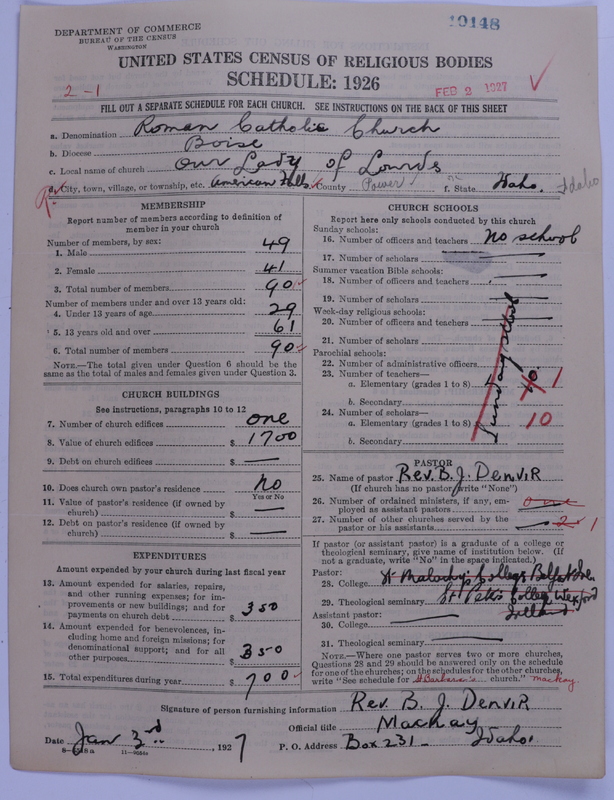 DEPARTMENT OF COMMERCE
BUREAU OF THE CENSUS
WASHINGTON
19148
UNITED STATES CENSUS OF RELIGIOUS BODIES
SCHEDULE: 1926
2-1
FEB 2 1927
FILL OUT A SEPARATE SCHEDULE FOR EACH CHURCH. SEE INSTRUCTIONS ON THE BACK OF THIS SHEET
a. Denomination Roman Catholic Church
b. Diocese Boise
c. Local name of church Our Lady of Lourds
d. City, town, village, or township, etc. American Falls County Power f. State Idaho. Idaho
MEMBERSHIP
Report number of members according to definition of
member in your church
Number of members, by sex:
1. Male 49
2. Female 41
3. Total number of members 90
Number of members under and over 13 years old:
4. Under 13 years of age 29
5. 13 years old and over 61
6. Total number of members 90
NOTE.—The total given under Question 6 should be
same as the total of males and females given under Question 3.
CHURCH BUILDINGS
See instructions, paragraphs 10 to 12
7. Number of church edifices one
8. Value of church edifices $ 1700
9. Debt on church edifices $ —
10. Does church own pastor's residence No
Yes or No
11. Value of pastor's residence (if owned by
church) $ —
12. Debt on pastor's residence (if owned by
church) $ —
EXPENDITURES
Amount expended by your church during last fiscal year
13. Amount expended for salaries, repairs,
and other running expenses; for im-
provements or new buildings; and for
payments on church debt $ 350
14. Amount expended for benevolences, in-
cluding home and foreign missions; for
denominational support; and for all
other purposes $ 350
15. Total expenditures during year $ 700
CHURCH SCHOOLS
Report here only schools conducted by this church
Sunday schools:
16. Number of officers and teachers No school
17. Number of scholars —
Summer vacation Bible schools:
18. Number of officers and teachers —
19. Number of scholars —
Week-day religious schools:
20. Number of officers and teachers —
21. Number of scholars
Parochial schools:
22. Number of administrative officers
23. Number of teachers—
a. Elementary (grades 1 to 8) 1
b. Secondary
24. Number of scholars—
a. Elementary (grades 1 to 8) 10
b. Secondary
Sunday school
PASTOR
25. Name of pastor Rev. B. J. Denvir
(If church has no pastor, write "None")
26. Number of ordained ministers, if any, em-
ployed as assistant pastors
27. Number of other churches served by the
pastor or his assistants 2 1
If pastor (or assistant pastor) is a graduate of a college or
theological seminary, give name of institution below. (If
not a graduate, write "No" in the space indicated.)
Pastor:
28. College St Malachys College Belfast Ire.
29. Theological seminary St Peters College Wexford
Ireland
Assistant pastor:
30. College —
31. Theological seminary —
NOTE.—Where one pastor serves two or more churches,
Questions 28 and 29 should be answered only on the schedule
for one of the churches; on the schedules for the other churches,
write "See schedule for St Barbara's church." Mackay.
Signature of person furnishing information Rev. B. J. Denvir
Official title Mackay
Date Jan 3rd, 1927 P. O. Address Box 231 - Idaho.